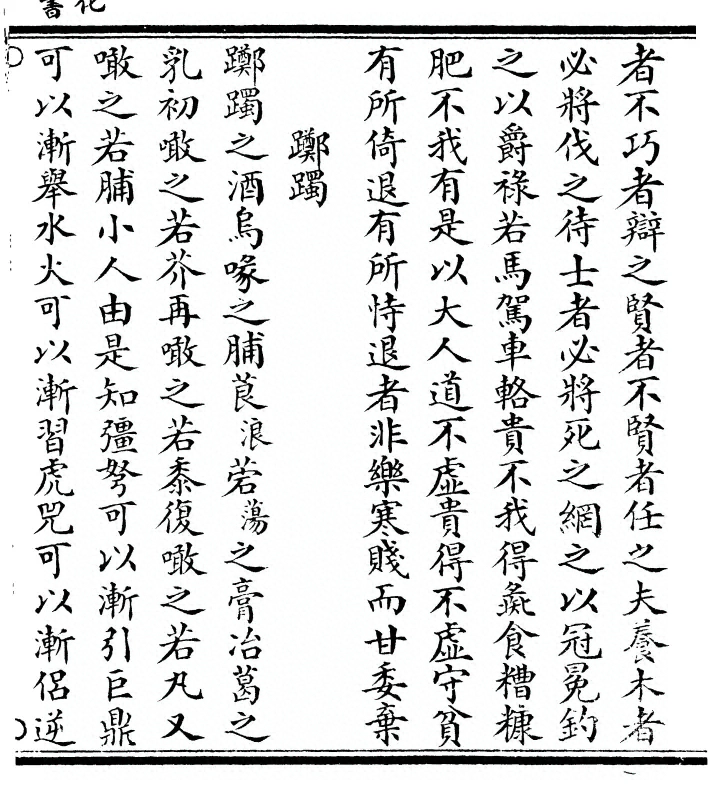 者不巧者辯之賢者不賢者任之夫養木者
必將伐之待士者必將死之網之以冠冕釣
之以爵祿若馬駕車輅貴不我得彘食糟糠
肥不我有是以大人道不虛貴得不虛守貧
有所倚退有所恃退者非樂寒賤而甘委棄
躑躅
躑躅之酒烏喙之脯莨浪菪蕩之膏冶葛之
乳初噉之若芥再噉之若黍復噉之若丸又
噉之若脯小人由是知彊弩可以漸引巨鼎
可以漸舉水火可以漸習虎兕可以漸侶逆